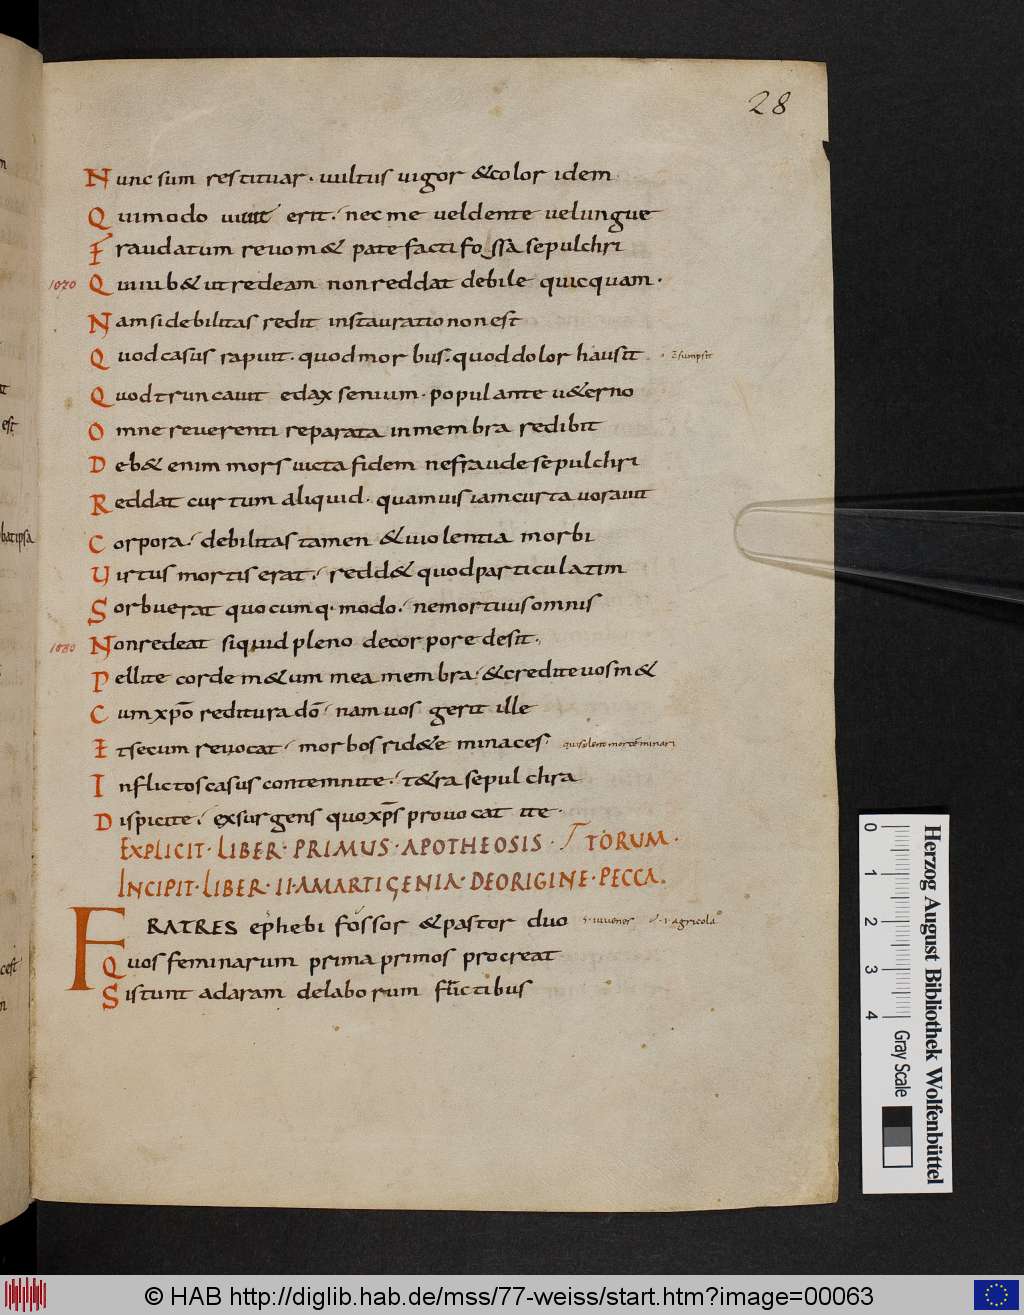 28
Nunc sum restituar. vultus vigor & color idem
Qui modo vivit erit. nec me vel dente vel ungue
Fraudatum revom& patefacti fossa sepulchri
1070 Qui iub& ut redeam non reddat debile quicquam.
Nam si debilitas redit instauratio non est
Quod casus rapuit. quod morbus. quod dolor hausit
Quod truncavit edax senium. populante veterno
Omne reverenti reparata in membra redibit
Deb& enim mors victa fidem ne fraude sepulchri
Reddat curtum aliquid. quamvis iam curta voravit
Corpora. debilitas tamen & violentia morbi
Virtus mortis erat. redd& quod particulatim
Sorbuerat quocumq. modo. ne mortuus omnis
1080 Non redeat siquid pleno de corpore desit.
Pellite corde m&um mea membra. & credite vos m&
Cum xpo reditura do. nam vos gerit ille
Et secum revocat. morbos rid&e minaces.
Inflictos casus contemnite. t&ra sepulchra
Dispicite. exsurgens quo xps provocat ite.
EXPLICIT. LIBER. PRIMUS. APOTHEOSIS. TORUM.
INCIPIT. LIBER. II. AMARTIGENIA. DE ORIGINE. PECCA.
FRATRES ephebi fossor & pastor duo
Quos feminarum prima primos procreat
Sistunt ad aram de laborum flictibus
Herzog August Bibliothek Wolfenbüttel
0 1 2 3 4 Gray Scale
© HAB http://diglib.hab.de/mss/77-weiss/start.htm?image=00063